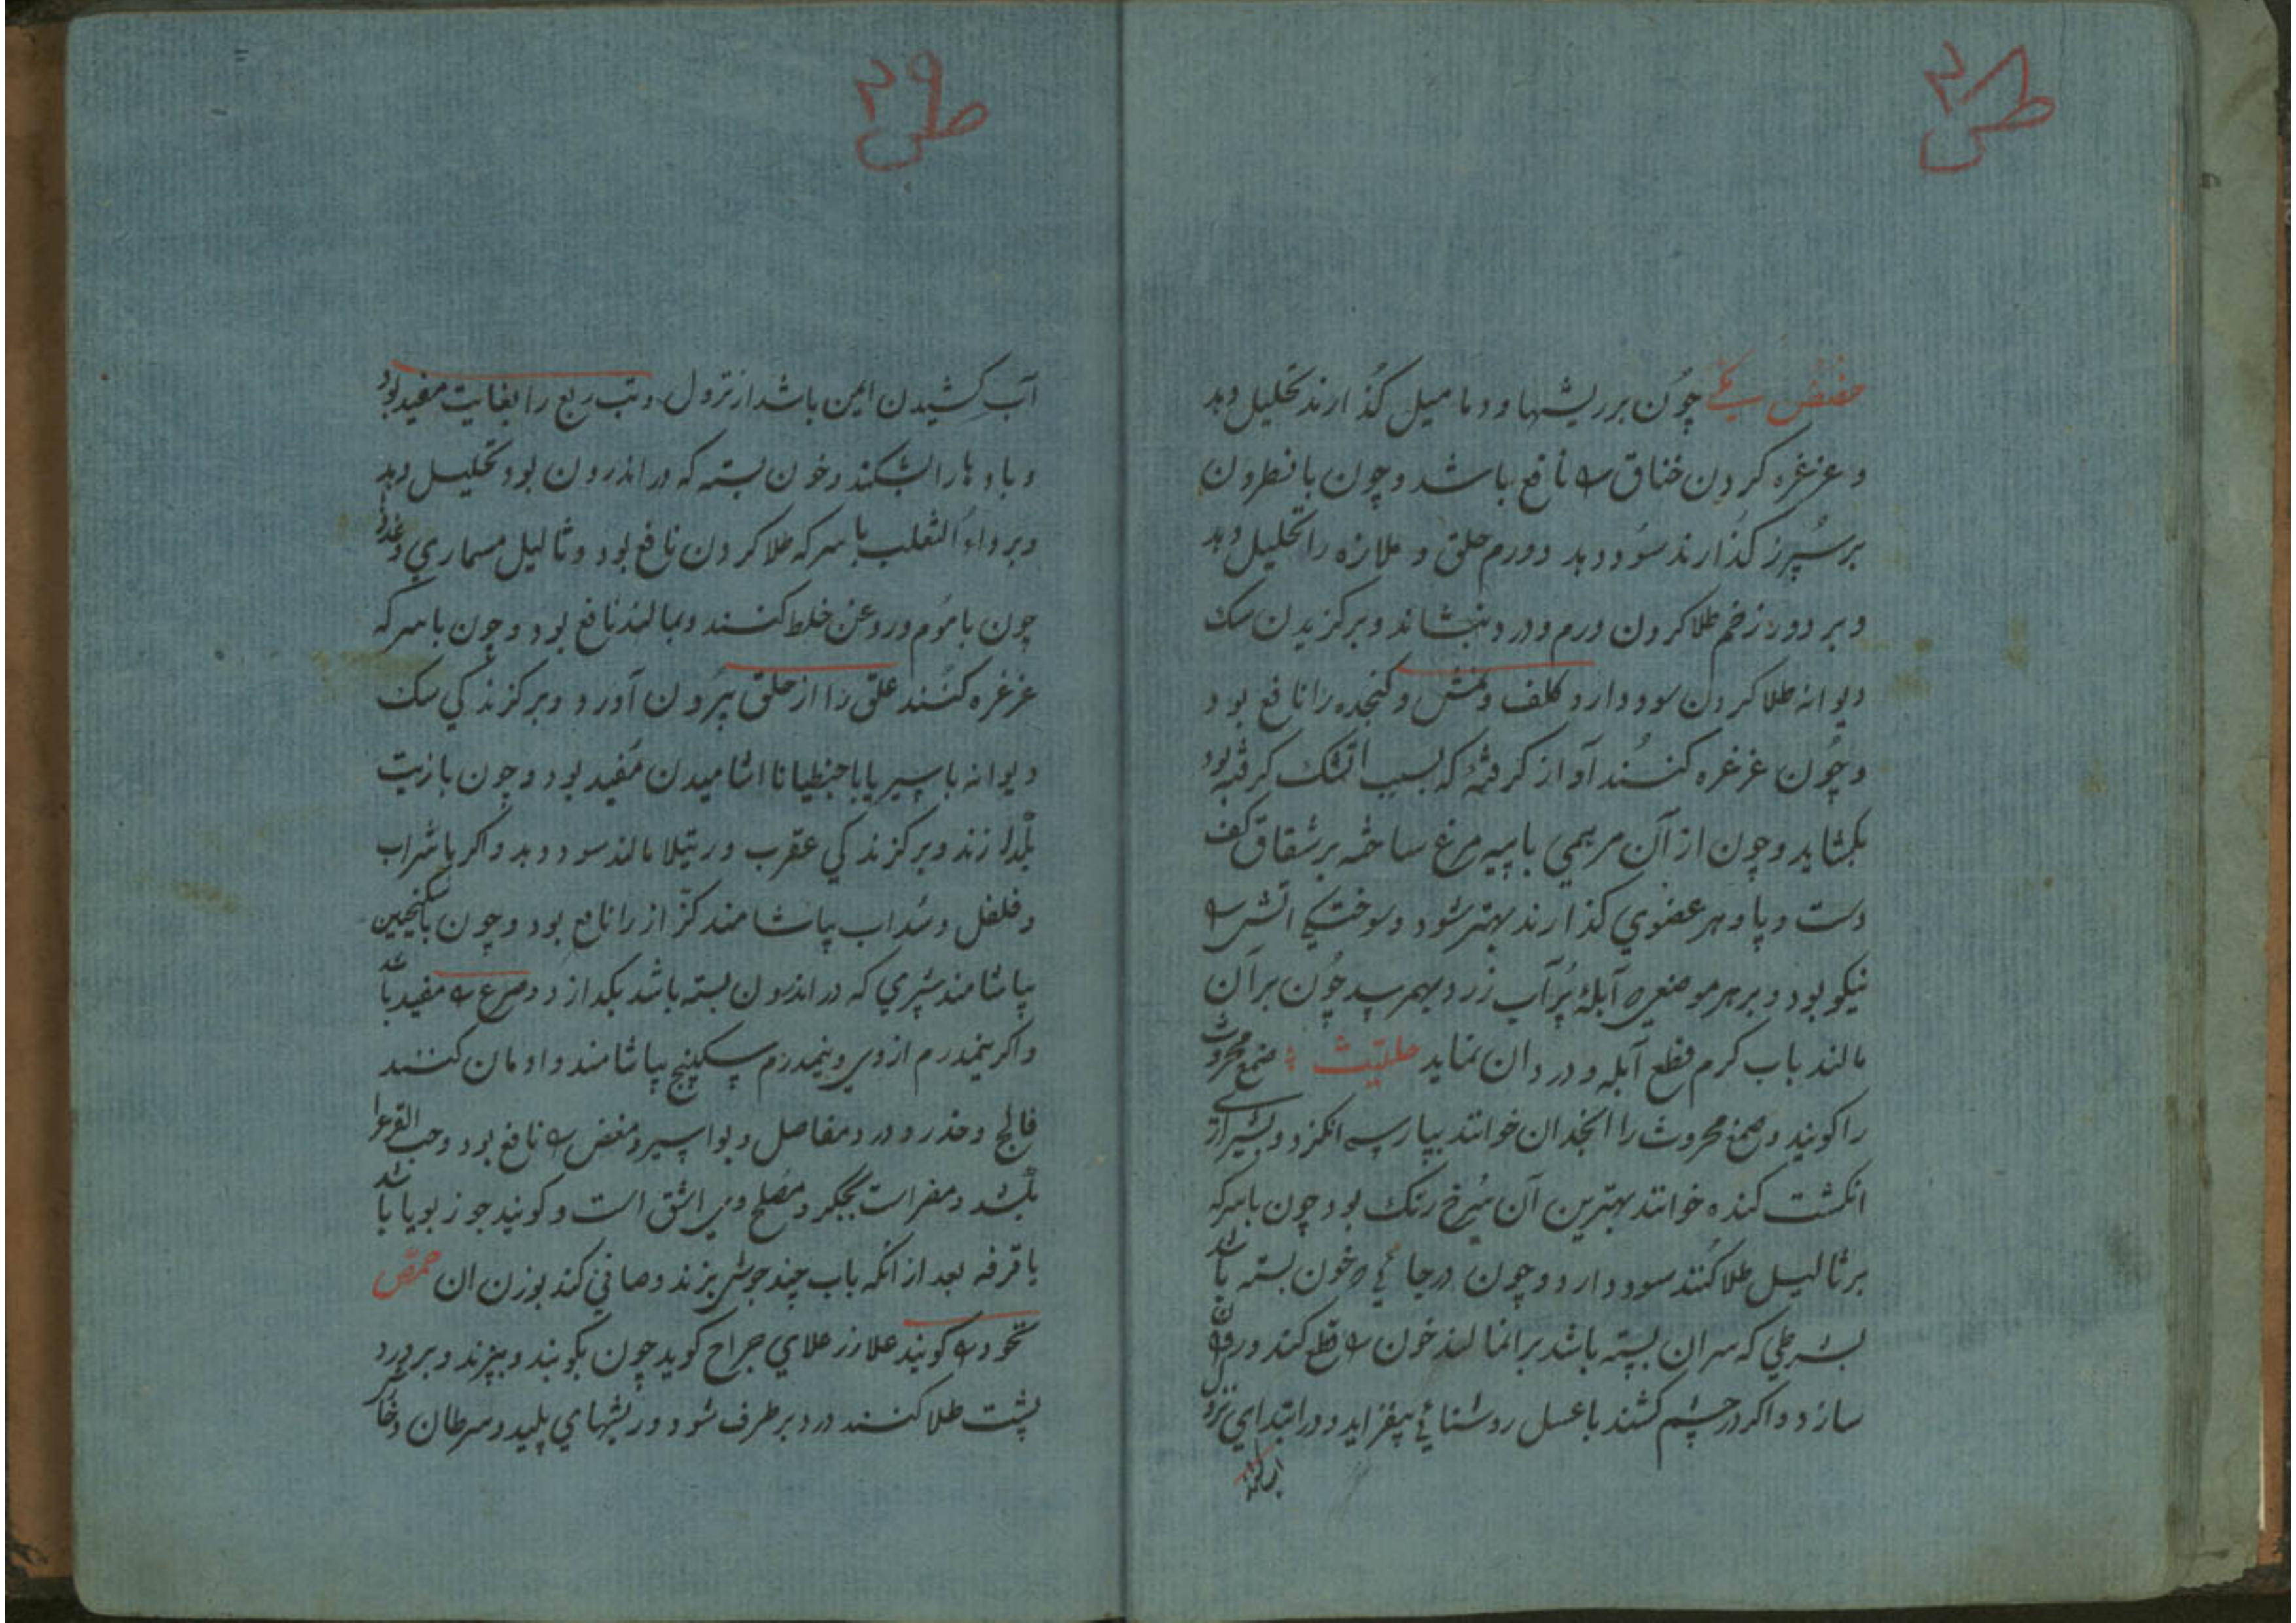 ۲۸
حضض مکی چون بر ریشها و دمامیل گذارند تحلیل دهد
و غرغره کردن خناق را نافع باشد و چون با نطرون
بر سپرز گذارند سود دهد و ورم حلق و ملازه را تحلیل دهد
و بر دور زخم طلا کردن ورم و درد بنشاند و بر گزیدن سک
دیوانه طلا کردن سود دارد کلف و نمش و کنجده را نافع بود
و چون غرغره کنند آواز گرفته که بسبب آتشک گرفته بود
بکشاید و چون از آن مرهمی با پیه مرغ ساخته بر شقاق کف
دست و پا و هر عضوی گذارند بهتر شود و سوختکی اتش را
نیکو بود و بر هر موضعی که آبله پر آب زرد بهم رسد چون بر آن
مالند باب کرم قطع آبله و درد آن نماید حلتیث صمغ محروث
را کویند و صمغ محروث را انجدان خوانند بپارسی انکزد و بشیرازی
انکشت کنده خوانند بهترین آن سرخ رنک بود چون باسرکه
بر ثالیل طلا کنند سود دارد و چون در جائی که خون بسته باشد
بشرطی که سر آن بسته باشد بر آنجا مالند خون را قطع کند و رقیق
سازد و اکر در چشم کشند با عسل روشنائی بیفزاید و در ابتدای نزول
آب کشیدن
۲۹
آب کشیدن ایمن باشد از نزول و تب ربع را بغایت مفید بود
و بادها را بشکند و خون بسته که در اندرون بود تحلیل دهد
و بر داء الثعلب با سرکه طلا کردن نافع بود و ثالیل مسماری و غدد
چون با موم و روغن خلط کنند و بمالند نافع بود و چون باسرکه
غرغره کنند علق را از حلق بیرون آورد و بر کزندکی سک
دیوانه با سیر یا با جنطیانا اشامیدن مفید بود و چون با زیت
بگدازند و بر کزندکی عقرب و رتیلا مالند سود دهد و اکر با شراب
و فلفل و سداب بیاشامند کزاز را نافع بود و چون با سکنجبین
بیاشامند شیری که در اندرون بسته باشد بکدازد و صرع را مفید باشد
و اکر نیمدرم از وی و نیمدرم سکبینج بیاشامند و ادمان کنند
فالج و خدر و درد مفاصل و بواسیر و مغص را نافع بود و حب القرع را
بکشد و مضر است بجکر و مصلح وی اشق است و کویند جوز بویا باشد
یا قرفه بعد از آنکه باب چند جوش بزند و صافی کند بوزن آن حمص
نخود را کویند علارزعلای جراح کوید چون بکوبند و بپزند و بر درد
پشت طلا کنند درد بر طرف شود و ریشهای پلید و سرطان و خنازیر